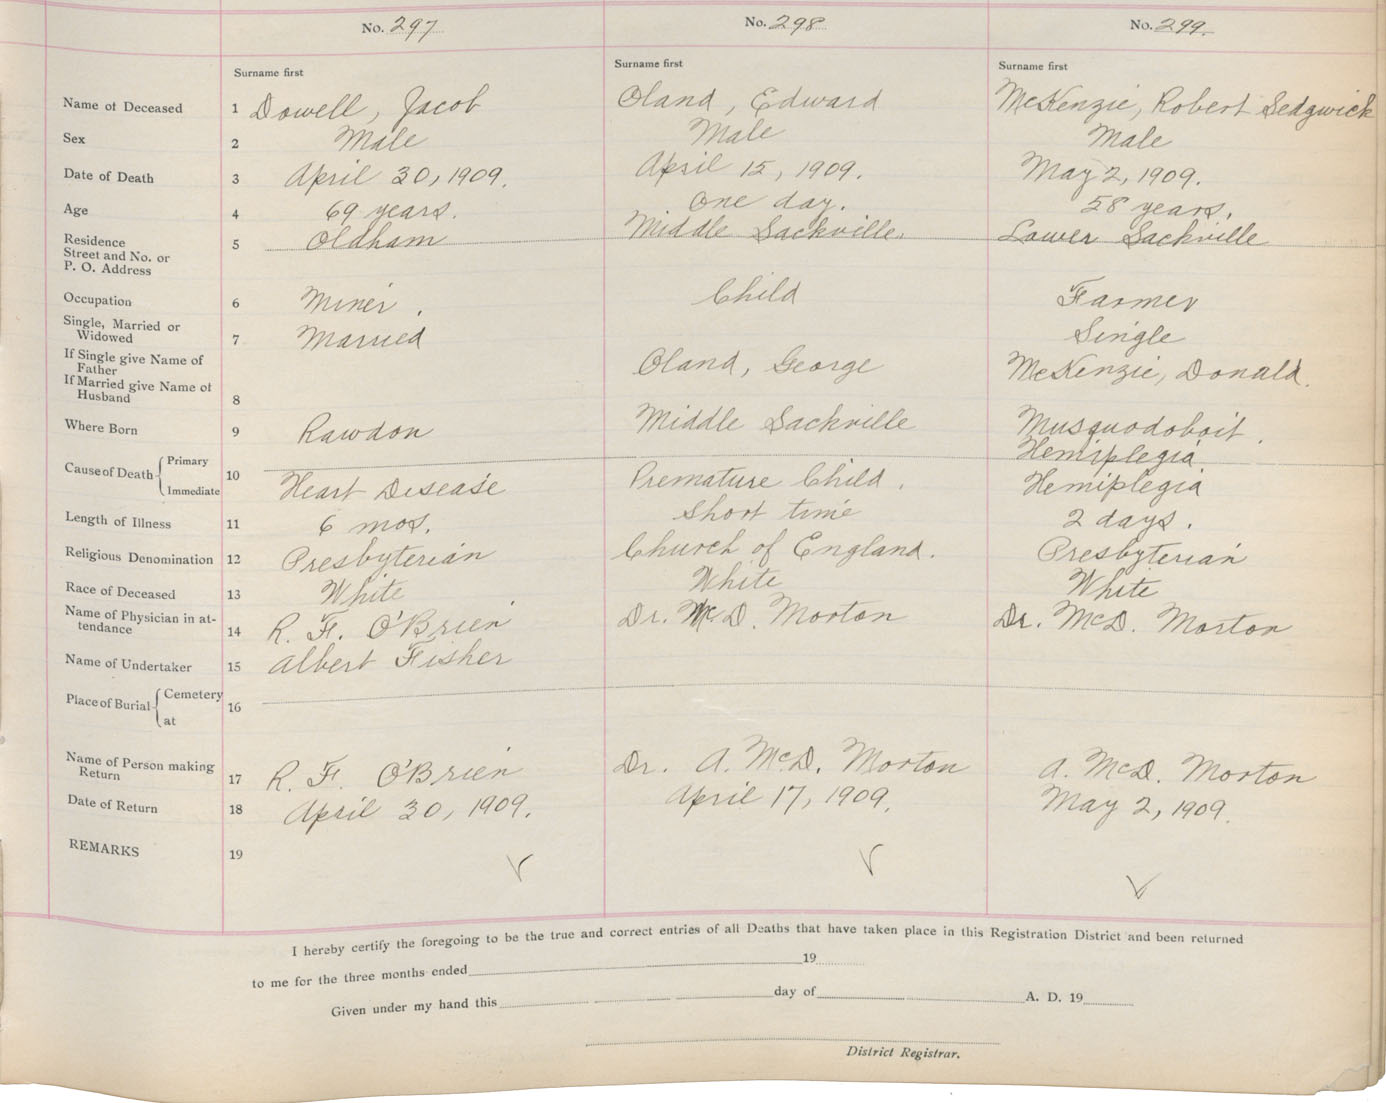 No. 297 No. 298 No. 299.
Surname first Surname first Surname first
Name of Deceased 1 Dowell, Jacob Oland, Edward McKenzie, Robert Sedgwick
Sex 2 Male Male Male
Date of Death 3 April 30, 1909. April 15, 1909. May 2, 1909.
Age 4 69 years. One day. 58 years.
Residence 5 Oldham Middle Sackville. Lower Sackville
Street and No. or
P. O. Address
Occupation 6 Miner. Child Farmer
Single, Married or
Widowed 7 Married Single
If Single give Name of
Father Oland, George McKenzie, Donald.
If Married give Name of
Husband 8
Where Born 9 Rawdon Middle Sackville Musquodoboit.
Cause of Death Primary Hemiplegia.
10
Immediate Heart Disease Premature Child. Hemiplegia
Length of Illness 11 6 mos. Short time 2 days.
Religious Denomination 12 Presbyterian Church of England. Presbyterian
Race of Deceased 13 White White White
Name of Physician in at-
tendance 14 R. F. O'Brien Dr. McD. Morton Dr. McD. Morton
Name of Undertaker 15 Albert Fisher
Place of Burial Cemetery
16
at
Name of Person making
Return 17 R. F. O'Brien Dr. A. McD. Morton A. McD. Morton
Date of Return 18 April 30, 1909. April 17, 1909. May 2, 1909.
REMARKS 19
I hereby certify the foregoing to be the true and correct entries of all Deaths that have taken place in this Registration District and been returned
to me for the three months ended 19
Given under my hand this day of A. D. 19
District Registrar.